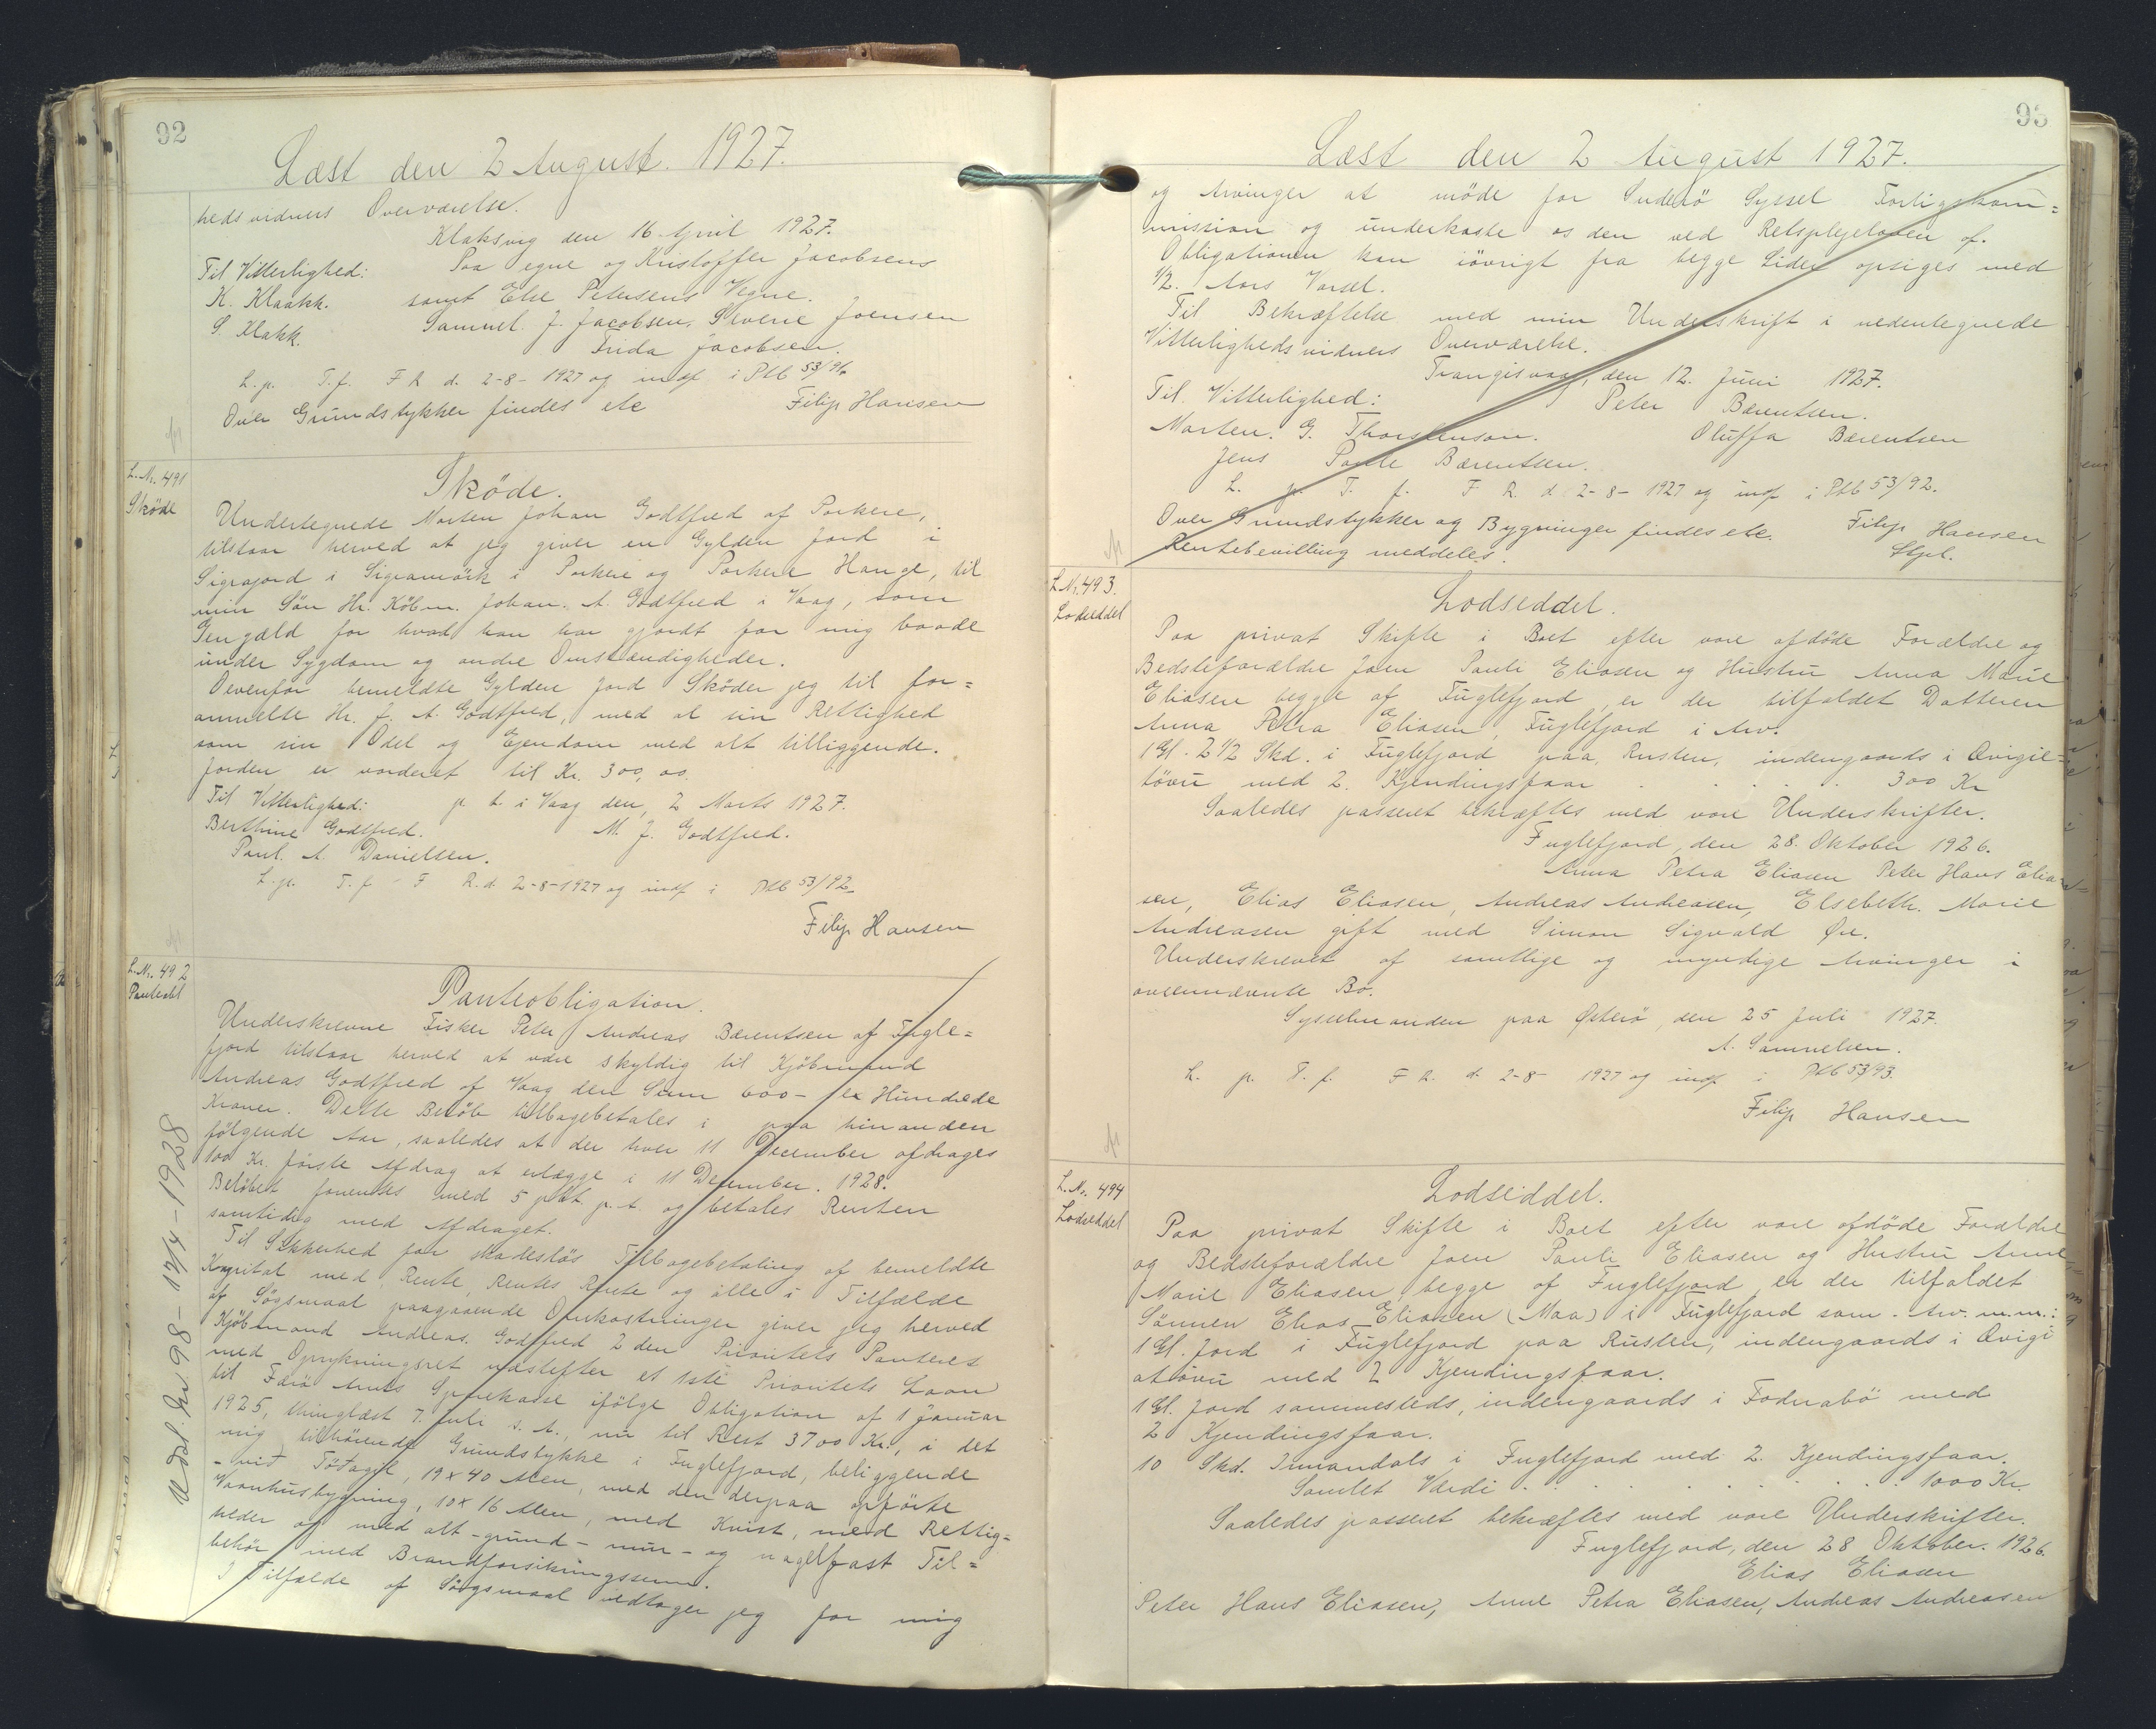 92
Læst den 2 August. 1927.
hedsvidners Overværelse.
Klaksvig den 16 April 1927.
Til Vitterlighed: Paa egne og Kristoffer Jacobsens
K. Klakk. samt Else Petersens Vegne.
S. Klakk. Samuel. J. Jacobsen, Sverre Joensen
Frida Jacobsen.
L. p. T. f. F R d. 2-8-1927 og indf i Ptb 53/91
Over Grundstykker findes etc Filip Hansen
L. Nr. 491
Sköde
Sköde.
Undertegnede Morten Johan Godtfred af Porkere,
tilstaar herved at jeg giver en Gylden Jord i
Sigrajord i Sigramörk i Porkere og Porkere Hauge, til
min Sön Hr. Köbm. Johan. A. Godtfred i Vaag, som
Gengæld for hvad han har gjordt for mig baade
under Sygdom og andre Omstændigheder.
Ovenfor bemeldte Gylden Jord Sköder jeg til for=
annelte Hr. J. A. Godtfred, med al sin Rettighed
som sin Odel og Ejendom med alt tilliggende.
Jorden er vorderet til Kr. 300,00.
Til Vitterlighed: p. t. i Vaag den, 2 Marts 1927.
Berthine Godtfred. M. J. Godtfred.
Poul. A. Danielsen.
L. p. T. f. F R. d. 2-8-1927 og indf i Ptb 53/92.
Filip Hansen
L. Nr. 492
Panteobl
Panteobligation.
Underskrevne Fisker Peter Andreas Bærentsen af Fugle=
fjord tilstaar herved at være skyldig til Kjöbmand
Andreas Godtfred af Vaag den Sum 600 - sex Hundrede
Kroner. Dette Belöb tilbagebetales i paa hinanden
fölgende Aar, saaledes at der hver 11 December afdrages
100 Kr. förste Afdrag at erlægge i 11 December. 1928.
Belöbet forrentes med 5 pct. p. a. og betales Renten
samtidig med Afdraget.
Til Sikkerhed for skadeslös Tilbagebetaling af bemeldte
Kapital med Rente, Rentes Rente og alle i Tilfælde
af Sögsmaal paagaaende Omkostninger giver jeg herved
Kjöbmand Andreas. Godtfred 2 den Prioritets Panteret
med Oprykningsret næstefter et 1ste Prioritets Laan
til Færö Amts Sparekasse ifölge Obligation af 1 Januar
1925, thinglæst 7. Juli s. A., nu til Rest 3700 Kr., i det
mig tilhörende Grundstykke i Fuglefjord, beliggende
- við Töðagil, 19 x 40 Alen, med den derpaa opförte
Vaanhusbygning, 10 x 16 Alen, med Kvist, med Rettig=
heder og med alt - grund - mur - og nagelfast Til=
behör med Brandforsikringssum.
I Tilfælde af Sögsmaal vedtager jeg for mig
Udsl. Nr 98 - 17/4 - 1928
93
Læst den 2 August 1927.
og Arvinger at möde for Suderö Syssel Forligskom=
mission og underkaste os den ved Retsplejeloven of.
Obligationen kan iövrigt fra begge Sider opsiges med
1/2. Aars Varsel.
Til Bekræftelse med min Underskrift i nedentegnede
Vitterligheds vidners Overværelse.
Trangisvaag, den 12. Juni 1927.
Til. Vitterlighed: Peter Bærentsen.
Morten. G. Thorstenson. Oluffa Bærentsen
Jens Poule Bærentsen.
L. p. T. f. F R. d. 2-8-1927 og indf i Ptb 53/92.
Over Grundstykker og Bygninger findes etc. Filip Hansen
Rentebevilling meddeles. Stpl.
L. Nr. 493.
Lodseddel
Lodseddel.
Paa privat Skifte i Boet efter vore afdöde Forældre og
Bedsteforældre Joen Pauli Eliasen og Hustru Anna Marie
Eliasen begge af Fuglefjord, er der tilfaldet Datteren
Anna Petra Eliasen, Fuglefjord i Arv.
1 Gl. 2 1/2 Skd. i Fuglefjord paa Rusten, indengaards i Ovigil=
tövu med 2. Kjendingsfaar . . . . . 300 Kr
Saaledes passeret bekræftes med vore Underskrifter.
Fuglefjord, den 28. Oktober 1926.
Anna Petra Eliasen Peter Hans Elia=
sen, Elias Eliasen, Andreas Andreasen, Elsebeth. Marie
Andreasen gift med Simon Sigvald Øre.
Underskrevet af samtlige og myndige Arvinger i
ovennævnte Bo.
Sysselmanden paa Østerö, den 25 Juli 1927.
A. Samuelsen.
L. p. T. f. F R. d. 2-8-1927 og indf i Ptb 53/93.
Filip Hansen
L. Nr. 494
Lodseddel
Lodseddel.
Paa privat Skifte i Boet efter vore afdöde Forældre
og Bedsteforældre Joen Pauli Eliasen og Hustru Anne
Marie Eliasen, begge af Fuglefjord, er der tilfaldet
Sönnen Elias Eliasen (Maa) i Fuglefjord som Arv. m.m.:
1 Gl. Jord i Fuglefjord paa Rusten, indengaards i Ovigi
atövu med 2 Kjendingsfaar.
1 Gl. Jord sammesteds, indengaards i Fodnabö med
2 Kjendingsfaar.
10 Skd. Innandals i Fuglefjord med 2. Kjendingsfaar.
Samlet Værdi . . . . . . 1000 Kr.
Saaledes passeret bekræftes med vore Underskrifter.
Fuglefjord, den 28 Oktober. 1926.
Elias Eliasen
Peter Hans Eliasen, Anne Petra Eliasen, Andreas Andreasen